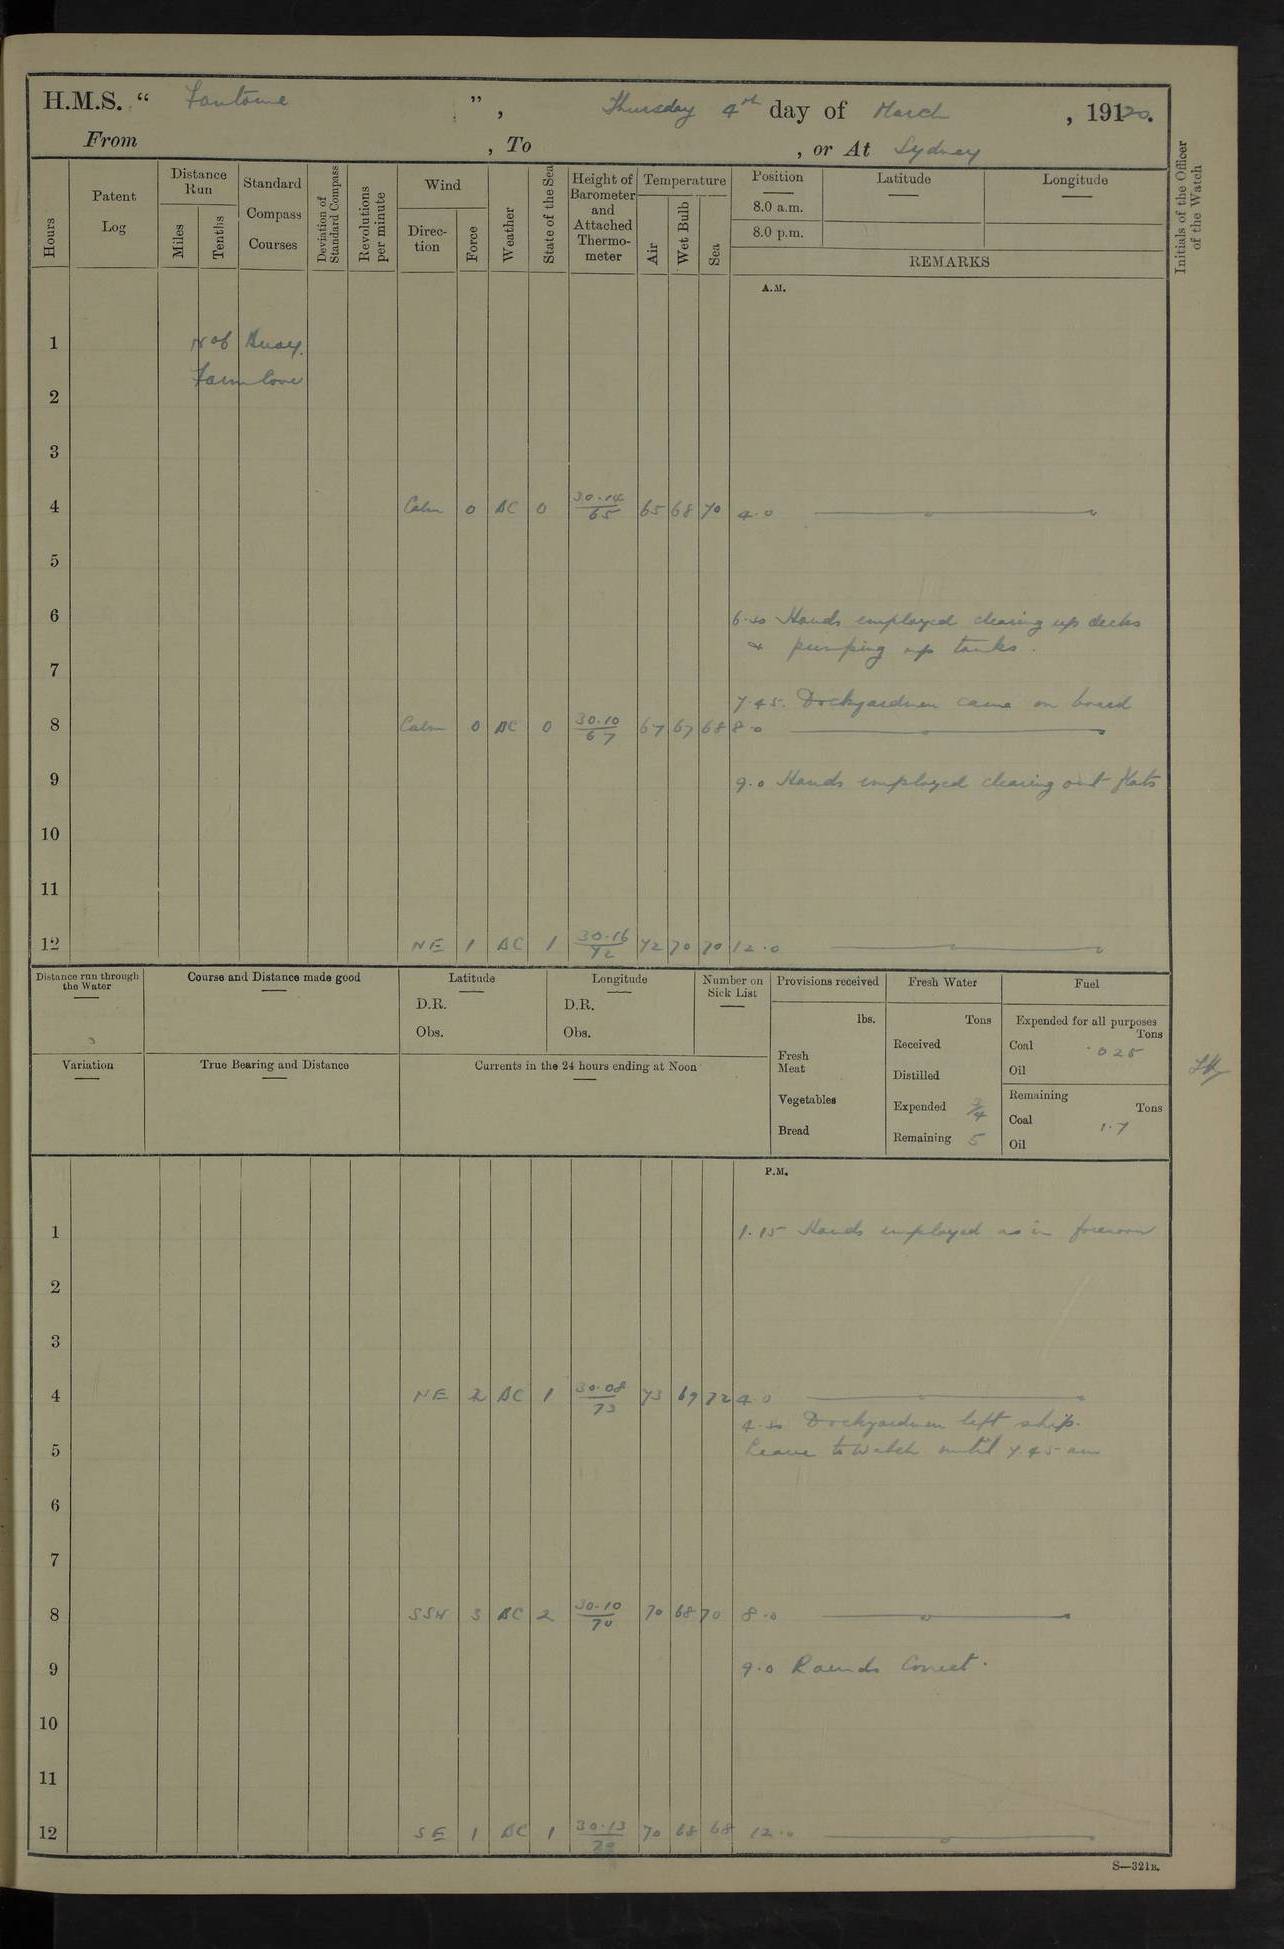 H.M.S. “ Fantome ”, Thursday 4th day of March, 19120.
From , To , or At Sydney
Hours
Patent Log
Distance Run
Miles
Tenths
Standard Compass Courses
Deviation of Standard Compass
Revolutions per minute
Wind
Direction
Force
Weather
State of the Sea
Height of Barometer and Attached Thermometer
Temperature
Air
Wet Bulb
Sea
Position
8.0 a.m.
8.0 p.m.
Latitude
Longitude
REMARKS
Initials of the Officer of the Watch
A.M.
1 No 6 Buoy.
Farm Cove
2
3
4 Calm 0 BC 0 30.14/65 65 68 70 4.0
5
6 6.30 Hands employed clearing up decks
& pumping up tanks.
7
7.45. Dockyardmen came on board
8 Calm 0 BC 0 30.10/67 67 67 68 8.0
9 9.0 Hands employed clearing out flats
10
11
12 NE 1 BC 1 30.16/72 72 70 70 12.0
Distance run through the Water
Course and Distance made good
Latitude
D.R.
Obs.
Longitude
D.R.
Obs.
Number on Sick List
Provisions received
lbs.
Fresh Meat
Vegetables
Bread
Fresh Water
Tons
Received
Distilled
Expended 3/4
Remaining 5
Fuel
Expended for all purposes
Tons
Coal .025
Oil
Remaining
Tons
Coal 1.7
Oil
Variation
True Bearing and Distance
Currents in the 24 hours ending at Noon
P.M.
1 1.15 Hands employed as in forenoon
2
3
4 NE 2 BC 1 30.08/73 73 69 72 4.0
4.30 Dockyardmen left ship.
Leave to Watch until 7.45 am
5
6
7
8 SSW 3 BC 2 30.10/70 70 68 70 8.0
9 9.0 Rounds Correct.
10
11
12 SE 1 BC 1 30.13/70 70 68 68 12.0
S—321B.